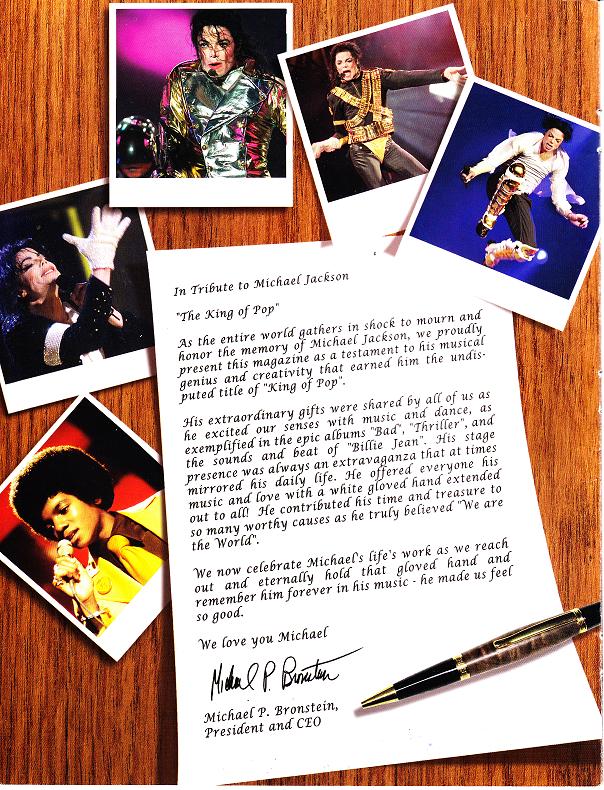 In Tribute to Michael Jackson
"The King of Pop"
As the entire world gathers in shock to mourn and
honor the memory of Michael Jackson, we proudly
present this magazine as a testament to his musical
genius and creativity that earned him the undis-
puted title of "King of Pop".
His extraordinary gifts were shared by all of us as
he excited our senses with music and dance, as
exemplified in the epic albums "Bad", "Thriller", and
the sounds and beat of "Billie Jean". His stage
presence was always an extravaganza that at times
mirrored his daily life. He offered everyone his
music and love with a white gloved hand extended
out to all! He contributed his time and treasure to
so many worthy causes as he truly believed "We are
the World".
We now celebrate Michael's life's work as we reach
out and eternally hold that gloved hand and
remember him forever in his music - he made us feel
so good.
We love you Michael
Michael P. Bronstein
Michael P. Bronstein,
President and CEO